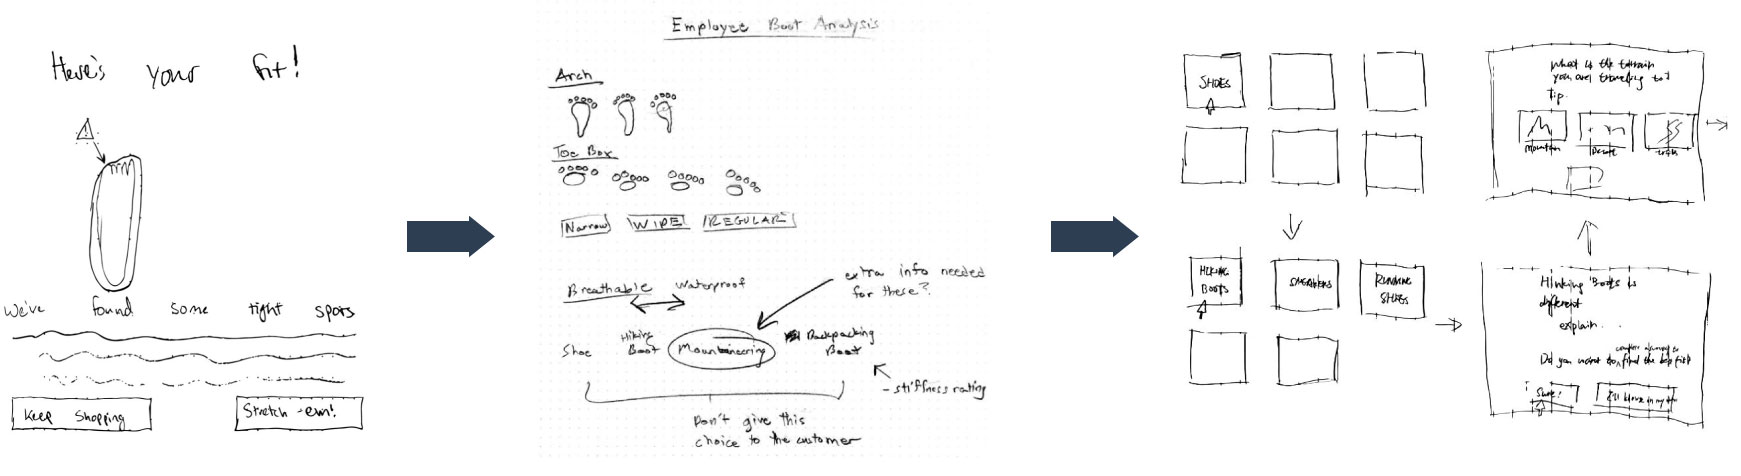 Here's your fit!
We've found some tight spots
Keep Shopping
Stretch -em!
Employee Boot Analysis
Arch
Toe Box
Narrow
WIDE
REGULAR
Breathable
Waterproof
extra info needed
for these?
Shoe
Hiking
Boot
Mountaineering
Backpacking
Boot
- stiffness rating
Don't give this
choice to the customer
SHOES
HIKING
BOOTS
SNEAKERS
RUNNING
SHOES
What is the terrain
you are traveling to?
Tip.
Mountain
Hinking Boots is
different
explain...
Did you want to find the
Sure!